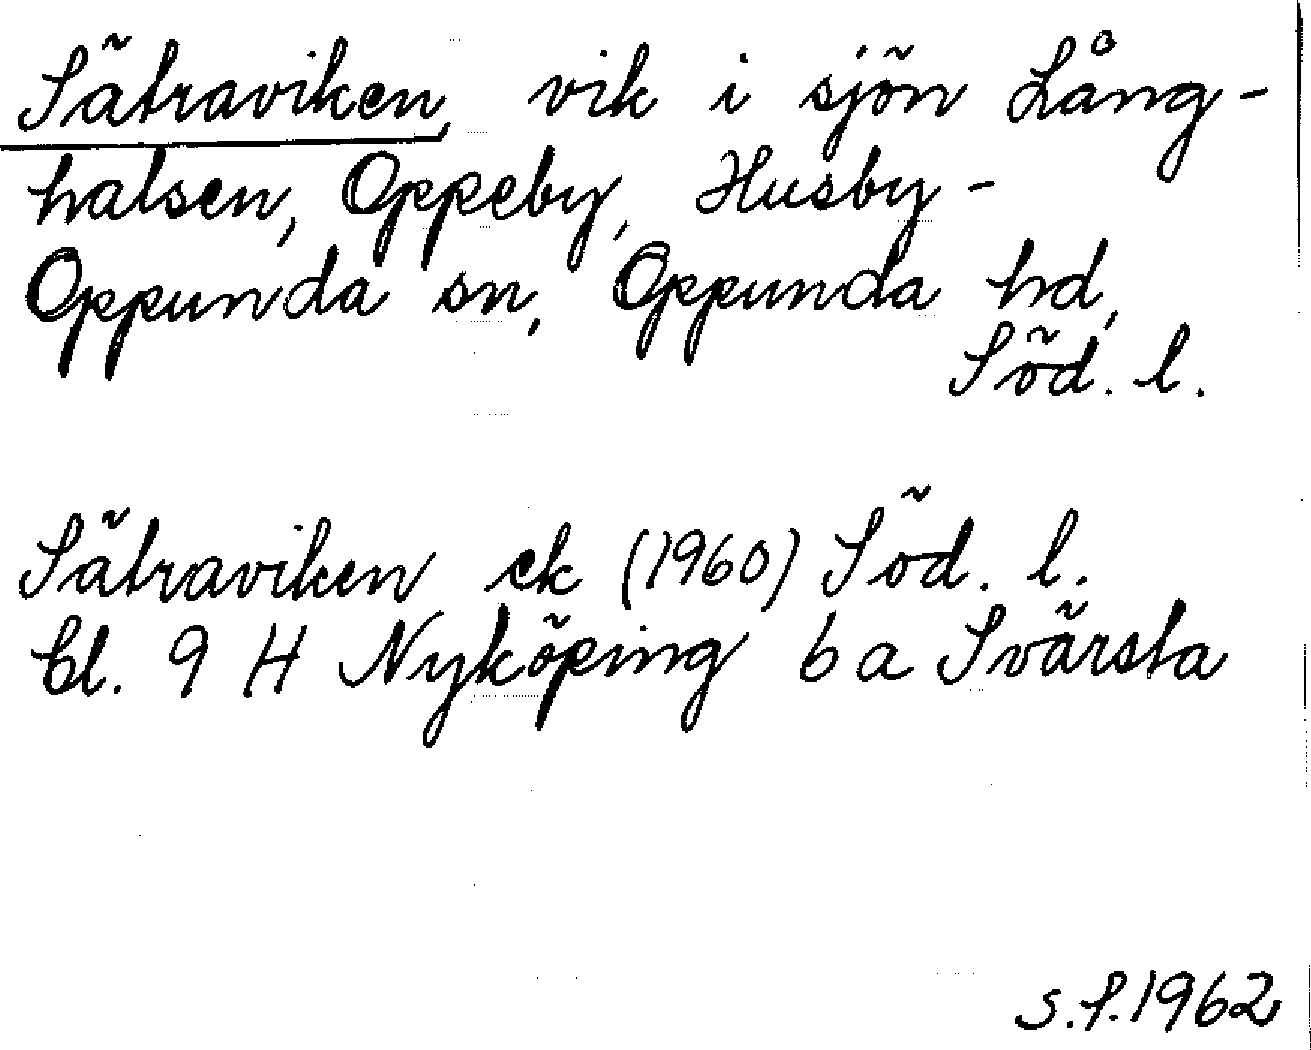 Sätraviken, vik i sjön Lång-
halsen, Oppeby, Husby-
Oppunda sn, Oppunda hd,
Söd. l.
Sätraviken ek (1960) Söd. l.
bl. 9 H Nyköping 6 a Svärsta
S.S. 1962